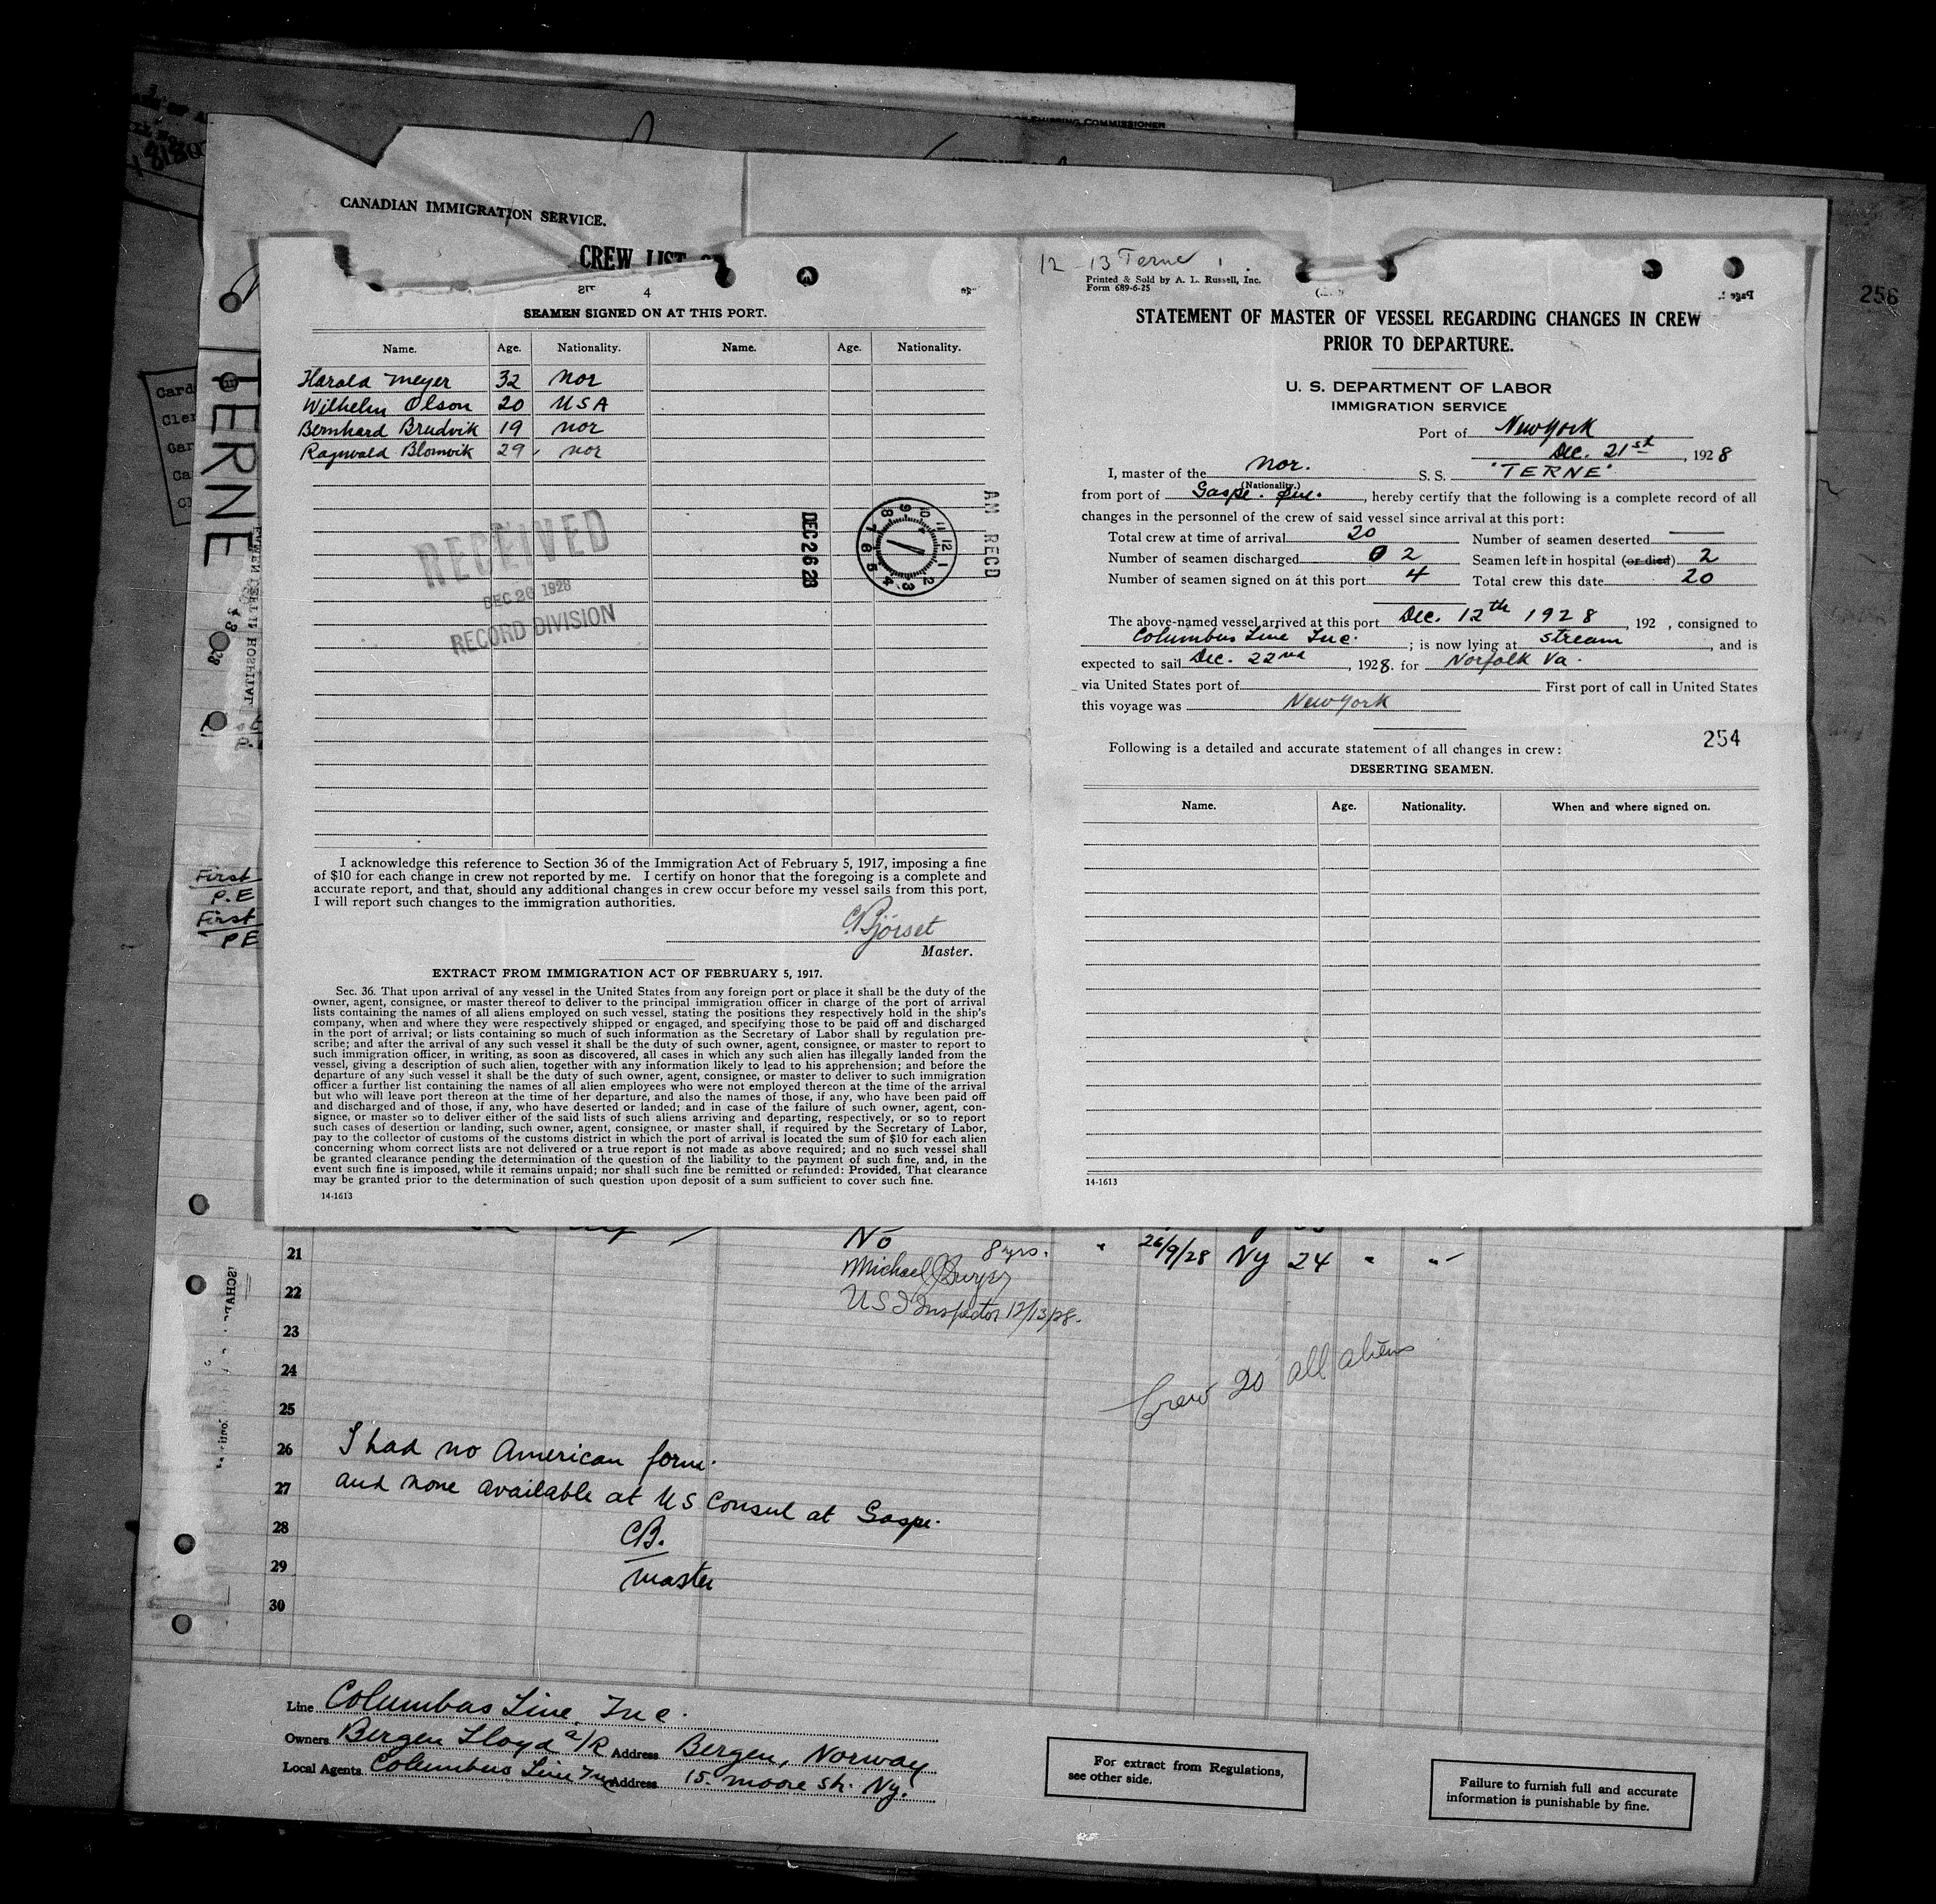 OF SHIPPING COMMISSIONER
256
CANADIAN IMMIGRATION SERVICE.
CREW LIST
4
SEAMEN SIGNED ON AT THIS PORT.
Name. Age. Nationality. Name. Age. Nationality.
Harald Meyer 32 Nor
Wilhelm Olson 20 USA
Bernhard Brudvik 19 Nor
Ragnvald Blomvik 29 Nor
RECEIVED
DEC 26 1928
RECORD DIVISION
DEC 26 28
AM RECD
I acknowledge this reference to Section 36 of the Immigration Act of February 5, 1917, imposing a fine
of $10 for each change in crew not reported by me. I certify on honor that the foregoing is a complete and
accurate report, and that, should any additional changes in crew occur before my vessel sails from this port,
I will report such changes to the immigration authorities.
C Bjorset
Master.
EXTRACT FROM IMMIGRATION ACT OF FEBRUARY 5, 1917.
Sec. 36. That upon arrival of any vessel in the United States from any foreign port or place it shall be the duty of the
owner, agent, consignee, or master thereof to deliver to the principal immigration officer in charge of the port of arrival
lists containing the names of all aliens employed on such vessel, stating the positions they respectively hold in the ship's
company, when and where they were respectively shipped or engaged, and specifying those to be paid off and discharged
in the port of arrival; or lists containing so much of such information as the Secretary of Labor shall by regulation pre-
scribe; and after the arrival of any such vessel it shall be the duty of such owner, agent, consignee, or master to report to
such immigration officer, in writing, as soon as discovered, all cases in which any such alien has illegally landed from the
vessel, giving a description of such alien, together with any information likely to lead to his apprehension; and before the
departure of any such vessel it shall be the duty of such owner, agent, consignee, or master to deliver to such immigration
officer a further list containing the names of all alien employees who were not employed thereon at the time of the arrival
but who will leave port thereon at the time of her departure, and also the names of those, if any, who have been paid off
and discharged and of those, if any, who have deserted or landed; and in case of the failure of such owner, agent, con-
signee, or master so to deliver either of the said lists of such aliens arriving and departing, respectively, or so to report
such cases of desertion or landing, such owner, agent, consignee, or master shall, if required by the Secretary of Labor,
pay to the collector of customs of the customs district in which the port of arrival is located the sum of $10 for each alien
concerning whom correct lists are not delivered or a true report is not made as above required; and no such vessel shall
be granted clearance pending the determination of the question of the liability to the payment of such fine, and, in the
event such fine is imposed, while it remains unpaid; nor shall such fine be remitted or refunded: Provided, That clearance
may be granted prior to the determination of such question upon deposit of a sum sufficient to cover such fine.
14-1613
12 13 Terne
Printed & Sold by A. L. Russell, Inc.
Form 689-6-25
STATEMENT OF MASTER OF VESSEL REGARDING CHANGES IN CREW
PRIOR TO DEPARTURE.
U. S. DEPARTMENT OF LABOR
IMMIGRATION SERVICE
Port of New York
Dec. 21st, 1928
I, master of the Nor. S. S. "TERNE"
(Nationality.)
from port of Gaspe. Que., hereby certify that the following is a complete record of all
changes in the personnel of the crew of said vessel since arrival at this port:
Total crew at time of arrival 20 Number of seamen deserted —
Number of seamen discharged 0 2 Seamen left in hospital (or died) 2
Number of seamen signed on at this port 4 Total crew this date 20
The above-named vessel arrived at this port Dec. 12th 1928, 192 , consigned to
Columbus Line Inc. ; is now lying at stream, and is
expected to sail Dec. 22nd, 1928. for Norfolk Va.
via United States port of First port of call in United States
this voyage was New York
254
Following is a detailed and accurate statement of all changes in crew:
DESERTING SEAMEN.
Name. Age. Nationality. When and where signed on.
14-1613
TERNE
First
P.E
First
PE
21 No 8 yrs. " 26/9/28 NY 24 " "
22 Michael
US Inspector 12/13/28.
23
24
Crew 20 all aliens
25
26 I had no American form.
27 and none available at US Consul at Gaspe.
28 CB.
29 master
30
Line Columbus Line, Inc.
Owners Bergen Lloyd a/R Address Bergen, Norway
Local Agents Columbus Line Inc Address 15. Moore St. Ny.
For extract from Regulations,
see other side.
Failure to furnish full and accurate
information is punishable by fine.